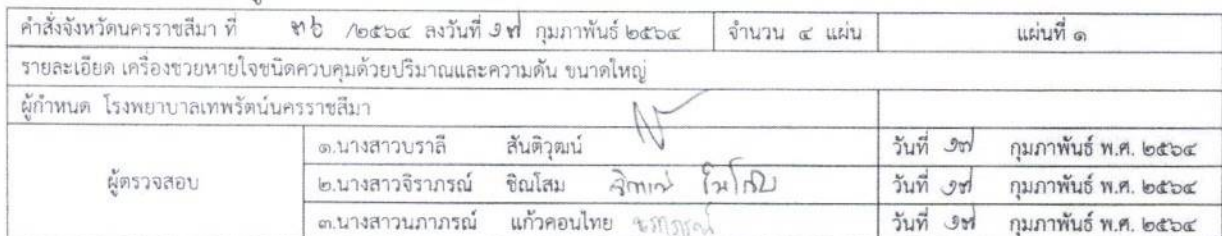 คำสั่งจังหวัดนครราชสีมา ที่ ๓๖ /๒๕๖๔ ลงวันที่ ๑๗ กุมภาพันธ์ ๒๕๖๔ จำนวน ๔ แผ่น แผ่นที่ ๑
รายละเอียด เครื่องช่วยหายใจชนิดควบคุมด้วยปริมาณและความดัน ขนาดใหญ่
ผู้กำหนด โรงพยาบาลเทพรัตน์นครราชสีมา
ผู้ตรวจสอบ
๑.นางสาวบราลี สันติวุฒน์ วันที่ ๑๗ กุมภาพันธ์ พ.ศ. ๒๕๖๔
๒.นางสาวจิราภรณ์ ชิณโสม วันที่ ๑๗ กุมภาพันธ์ พ.ศ. ๒๕๖๔
๓.นางสาวนภาภรณ์ แก้วคอนไทย นภาภรณ์ วันที่ ๑๗ กุมภาพันธ์ พ.ศ. ๒๕๖๔